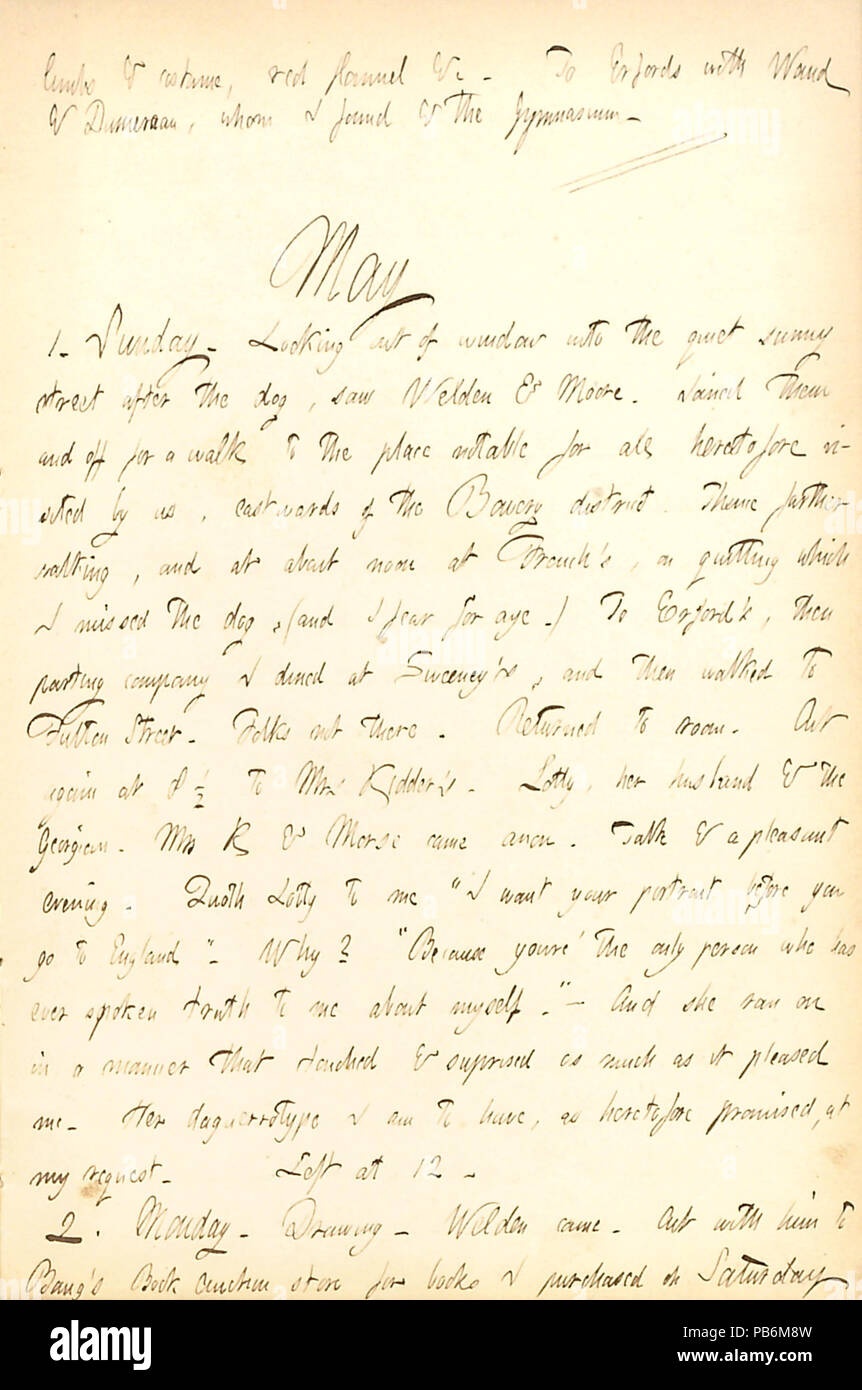 limbs & costume, red flannel &c — To Erfords with Waud
& Dumeraau, whom I found @ the Gymnasium —
May
1. Sunday — Looking out of window into the quiet sunny
street after the dog, saw Welden & Moore. Joined them
and off for a walk to the place notable for ale heretofore vi-
sited by us, eastwards of the Bowery district. Thence further
walking, and at about noon at Crouch's, on quitting which
I missed the dog, (and I fear for aye.) To Erford's, then
parting company I dined at Sweeney's, and then walked to
Fulton Street. Folks not there. Returned to room. Out
again at 8 ½ to Mrs Kidder's. Lotty, her husband & the
Georgian. Mrs K & Morse came anon. Talk & a pleasant
evening. Quoth Lotty to me "I want your portrait before you
go to England". Why? "Because youre' the only person who has
ever spoken truth to me about myself." — And she ran on
in a manner that touched & suprised as much as it pleased
me. Her daguerrotype I am to have, as heretofore promised, at
my request. Left at 12 —
2. Monday — Drawing — Welden came. Out with him to
Bang's Book Auction store for books I purchased on Saturday
alamy
Image ID: PB6M8W
www.alamy.com